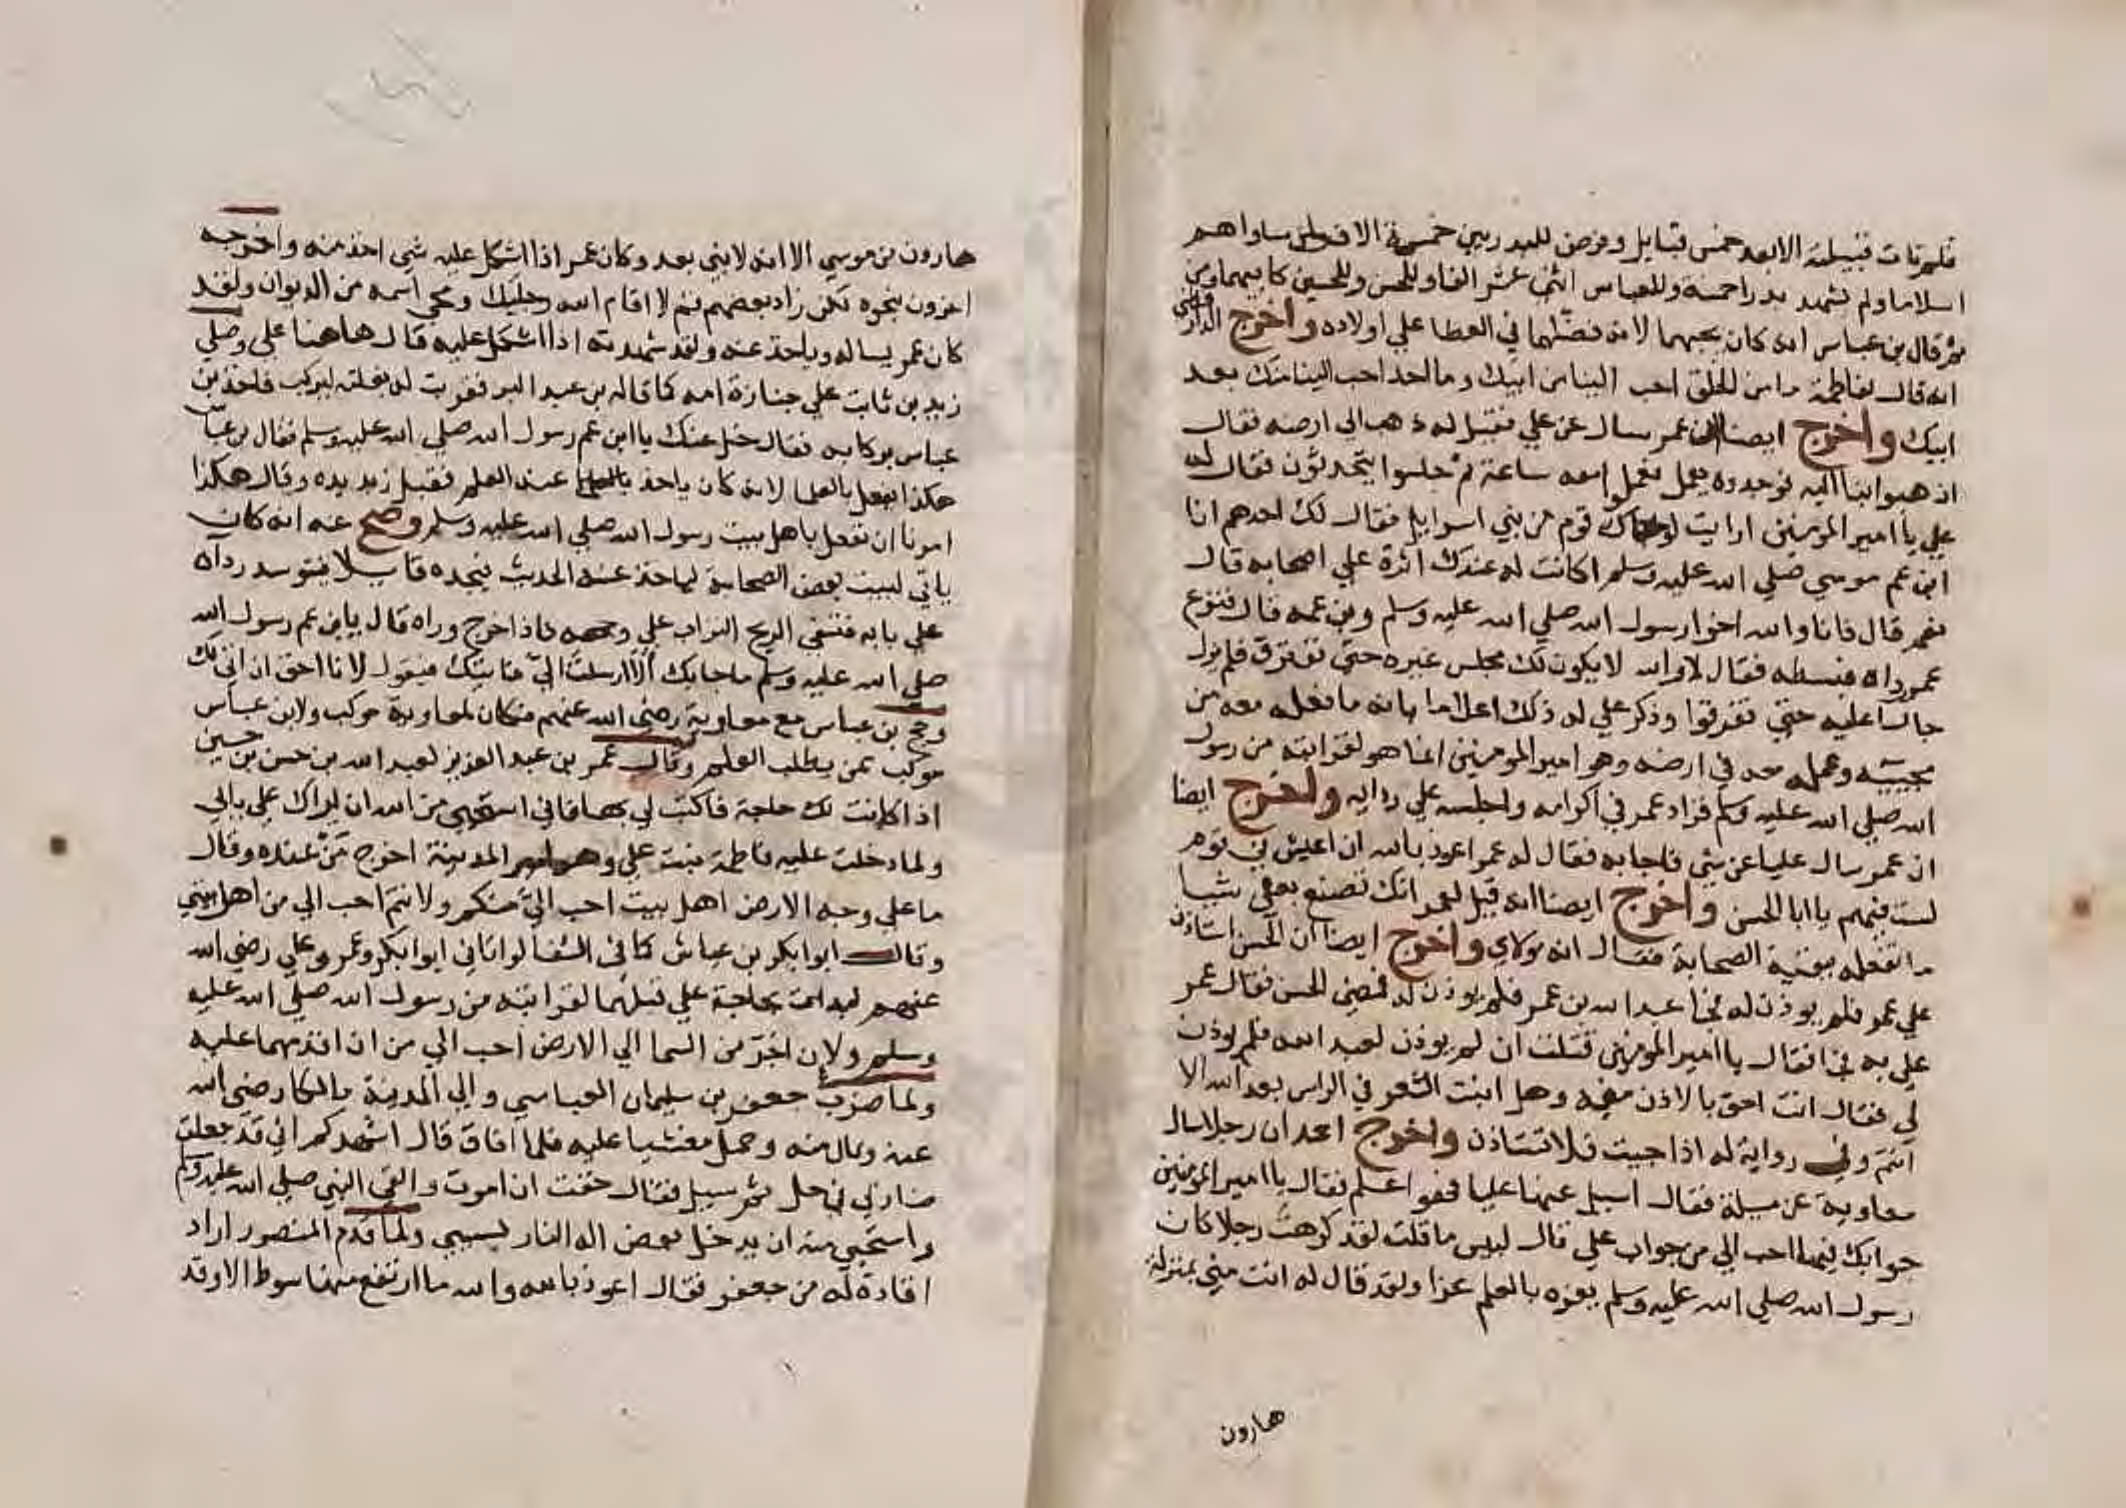 فلم تات قبيلته الا بعد خمس قبايل وفرض للبدريين خمسة الاف ولمن ساواهم
اسلاما ولم تشهد بدرا خمسة وللعباس اثنى عشر الفا وللحسن وللحسين كابيهما ومن
ثم قال بن عباس انه كان يحبهما لانه فضلهما في العطا علي اولاده واخرج الدارقطني
انه قال لفاطمة ما من الخلق احب الينا من ابيك وما احد احب الينا منك بعد
ابيك واخرج ايضا ان عمر سال عن علي فقيل له ذهب الى ارضه فقال
اذهبوا بنا اليه فوجدوه يعمل فعملوا معه ساعة ثم جلسوا يتحدثون فقال له
علي يا امير المومنين ارايت لو جاك قوم من بني اسرايل فقال لك احدهم انا
ابن عم موسي صلي الله عليه وسلم اكانت له عندك اثرة علي اصحابه قال
نعم قال فانا والله اخوا رسول الله صلي الله عليه وسلم وبن عمه قال فنزع
عمر رداه فبسطه فقال لا والله لا يكون لك مجلس غيره حتى نفترق فلم يزل
جالسا عليه حتي تفرقوا وذكر علي له ذلك اعلاما بانه ما فعله معه من
مجييه وعمله معه في ارضه وهو امير المومنين انما هو لقرابته من رسول
الله صلي الله عليه وسلم فزاد عمر في اكرامه واجلسه علي ردايه واخرج ايضا
ان عمر سال عليا عن شي فاجابه فقال له عمر اعوذ بالله ان اعيش في قوم
لست فيهم يا ابا الحسن واخرج ايضا انه قيل لعمر انك تصنع بعلي شيا
ما تفعله ببقية الصحابة فقال انه مولاي واخرج ايضا ان الحسن استاذن
علي عمر فلم يوذن له فجا عبد الله بن عمر فلم يوذن له فمضي الحسن فقال عمر
علي به فجا فقال يا امير المومنين قلت ان لم يوذن لعبد الله فلم يوذن
لي فقال انت احق بالاذن منه وهل انبت الشعر في الراس بعد الله الا
انتم وفي رواية له اذا جيت فلا تستاذن واخرج احمد ان رجلا سال
معاوية عن مسيلة فقال اسيل عنها عليا فهو اعلم فقال يا امير المومنين
جوابك فيها احب الي من جواب علي قال ليس ما قلت لقد كرهت رجلا كان
رسول الله صلي الله عليه وسلم يعزه بالعلم عزا ولقد قال له انت مني بمنزلة
هارون
هارون من موسي الا انه لا نبي بعدي وكان عمر اذا اشكل عليه شي اخذ منه واخرجه
اخرون بنحوه لكن زاد بعضهم قم لا اقام الله رجليك ومحي اسمه من الديوان ولقد
كان عمر يساله وياخذ عنه ولقد شهدته اذا اشكل عليه قال هاهنا علي وصلي
زيد بن ثابت علي جنازة امه كما قاله بن عبد البر فقربت له بغلته ليركب فاخذ بن
عباس بركابه فقال خل عنك يا ابن عم رسول الله صلي الله عليه وسلم فقال بن عباس
هكذا نفعل بالعلما لانه كان ياخذ عنه العلم فقبل زيد يده وقال هكذا
امرنا ان نفعل باهل بيت رسول الله صلي الله عليه وسلم وصح عنه انه كان
ياتي لبيت بعض الصحابة لياخذ عنه الحديث فيجده قايلا فيتوسد رداه
علي بابه فتسفي الريح التراب علي وجهه فاذا خرج وراه قال يا بن عم رسول الله
صلي الله عليه وسلم ما جا بك الا ارسلت الي فاتيك فيقول لا انا احق ان اتي لك
وحج بن عباس مع معاوية رضي الله عنهم فكان لمعاوية موكب ولابن عباس
موكب ممن يطلب العلم وقال عمر بن عبد العزيز لعبد الله بن حسن بن حسين
اذا كانت لك حاجة فاكتب لي بها فاني استحيي من الله ان يراك علي بابي
ولما دخلت عليه فاطمة بنت علي وهو امير المدينة اخرج من عنده وقال
ما على وجه الارض اهل بيت احب الي منكم ولانتم احب الي من اهل بيتي
وقال ابوا بكر بن عياش كما في الشفا لو اتاني ابوا بكر وعمر وعلي رضي الله
عنهم لبدات بحاجة علي قبلهما لقرابته من رسول الله صلي الله عليه
وسلم ولان اخر من السما الي الارض احب الي من ان اقدمهما عليه
ولما ضرب جعفر بن سليمان العباسي والي المدينة مالكا رضي الله
عنه ونال منه وحمل مغشيا عليه فلما افاق قال اشهدكم اني قد جعلت
ضاربي في حل ثم سيل فقال خفت ان اموت والقي النبي صلي الله عليه وسلم
واستحيي منه ان يدخل بعض اله النار بسببي ولما قدم المنصور اراد
اقادة له من جعفر فقال اعوذ بالله والله ما ارتفع منها سوط الا وقد